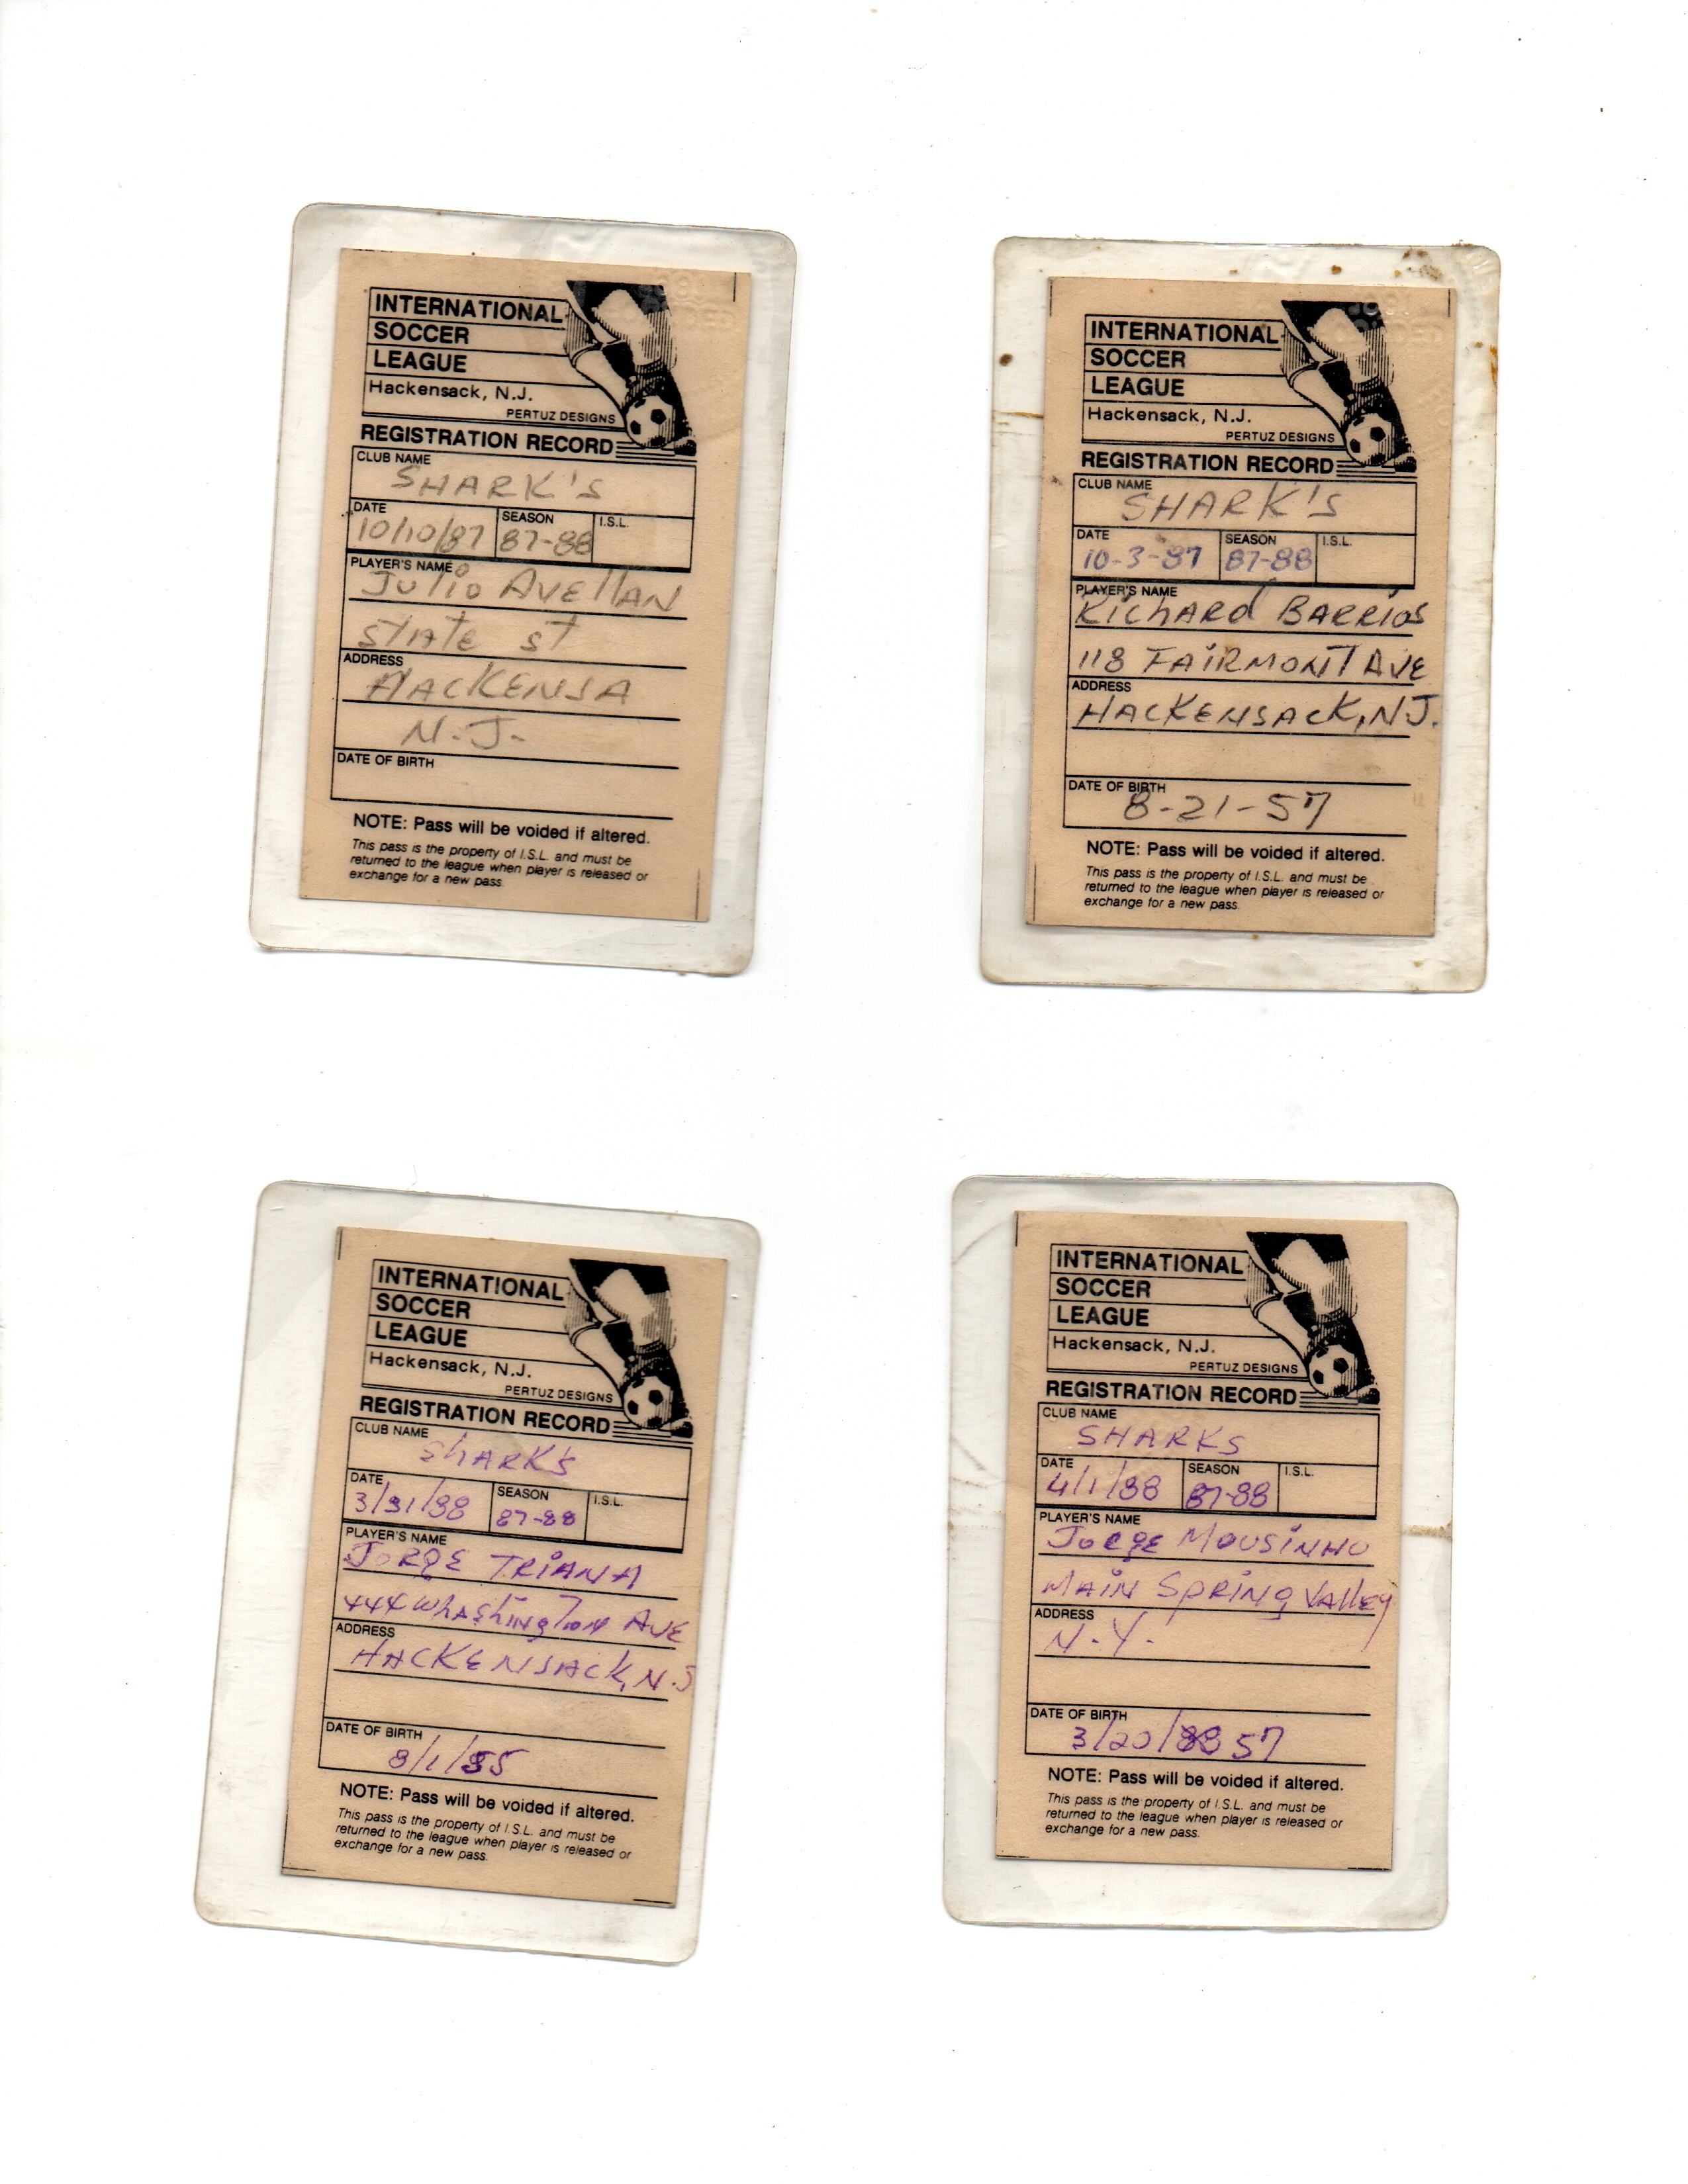 INTERNATIONAL
SOCCER
LEAGUE
Hackensack, N.J.
PERTUZ DESIGNS
REGISTRATION RECORD
CLUB NAME
SHARK'S
DATE SEASON I.S.L.
10/10/87 87-88
PLAYER'S NAME
Julio Avellan
State St
ADDRESS
HACKENSA
N.J.
DATE OF BIRTH
NOTE: Pass will be voided if altered.
This pass is the property of I.S.L. and must be
returned to the league when player is released or
exchange for a new pass.
INTERNATIONAL
SOCCER
LEAGUE
Hackensack, N.J.
PERTUZ DESIGNS
REGISTRATION RECORD
CLUB NAME
SHARK'S
DATE SEASON I.S.L.
10-3-87 87-88
PLAYER'S NAME
Richard BARRIOS
118 FAIRMONT AVE
ADDRESS
HACKENSACK, NJ.
DATE OF BIRTH
8-21-57
NOTE: Pass will be voided if altered.
This pass is the property of I.S.L. and must be
returned to the league when player is released or
exchange for a new pass.
INTERNATIONAL
SOCCER
LEAGUE
Hackensack, N.J.
PERTUZ DESIGNS
REGISTRATION RECORD
CLUB NAME
ShARK's
DATE SEASON I.S.L.
3/31/88 87-88
PLAYER'S NAME
JORGE TRIANA
444 Whashington AVE
ADDRESS
HACKENSACK, N.J
DATE OF BIRTH
8/1/55
NOTE: Pass will be voided if altered.
This pass is the property of I.S.L. and must be
returned to the league when player is released or
exchange for a new pass.
INTERNATIONAL
SOCCER
LEAGUE
Hackensack, N.J.
PERTUZ DESIGNS
REGISTRATION RECORD
CLUB NAME
SHARKS
DATE SEASON I.S.L.
4/1/88 87-88
PLAYER'S NAME
JORGE MOUSINHO
MAIN SPRING VAllEy
ADDRESS
N.Y.
DATE OF BIRTH
3/20/88 57
NOTE: Pass will be voided if altered.
This pass is the property of I.S.L. and must be
returned to the league when player is released or
exchange for a new pass.